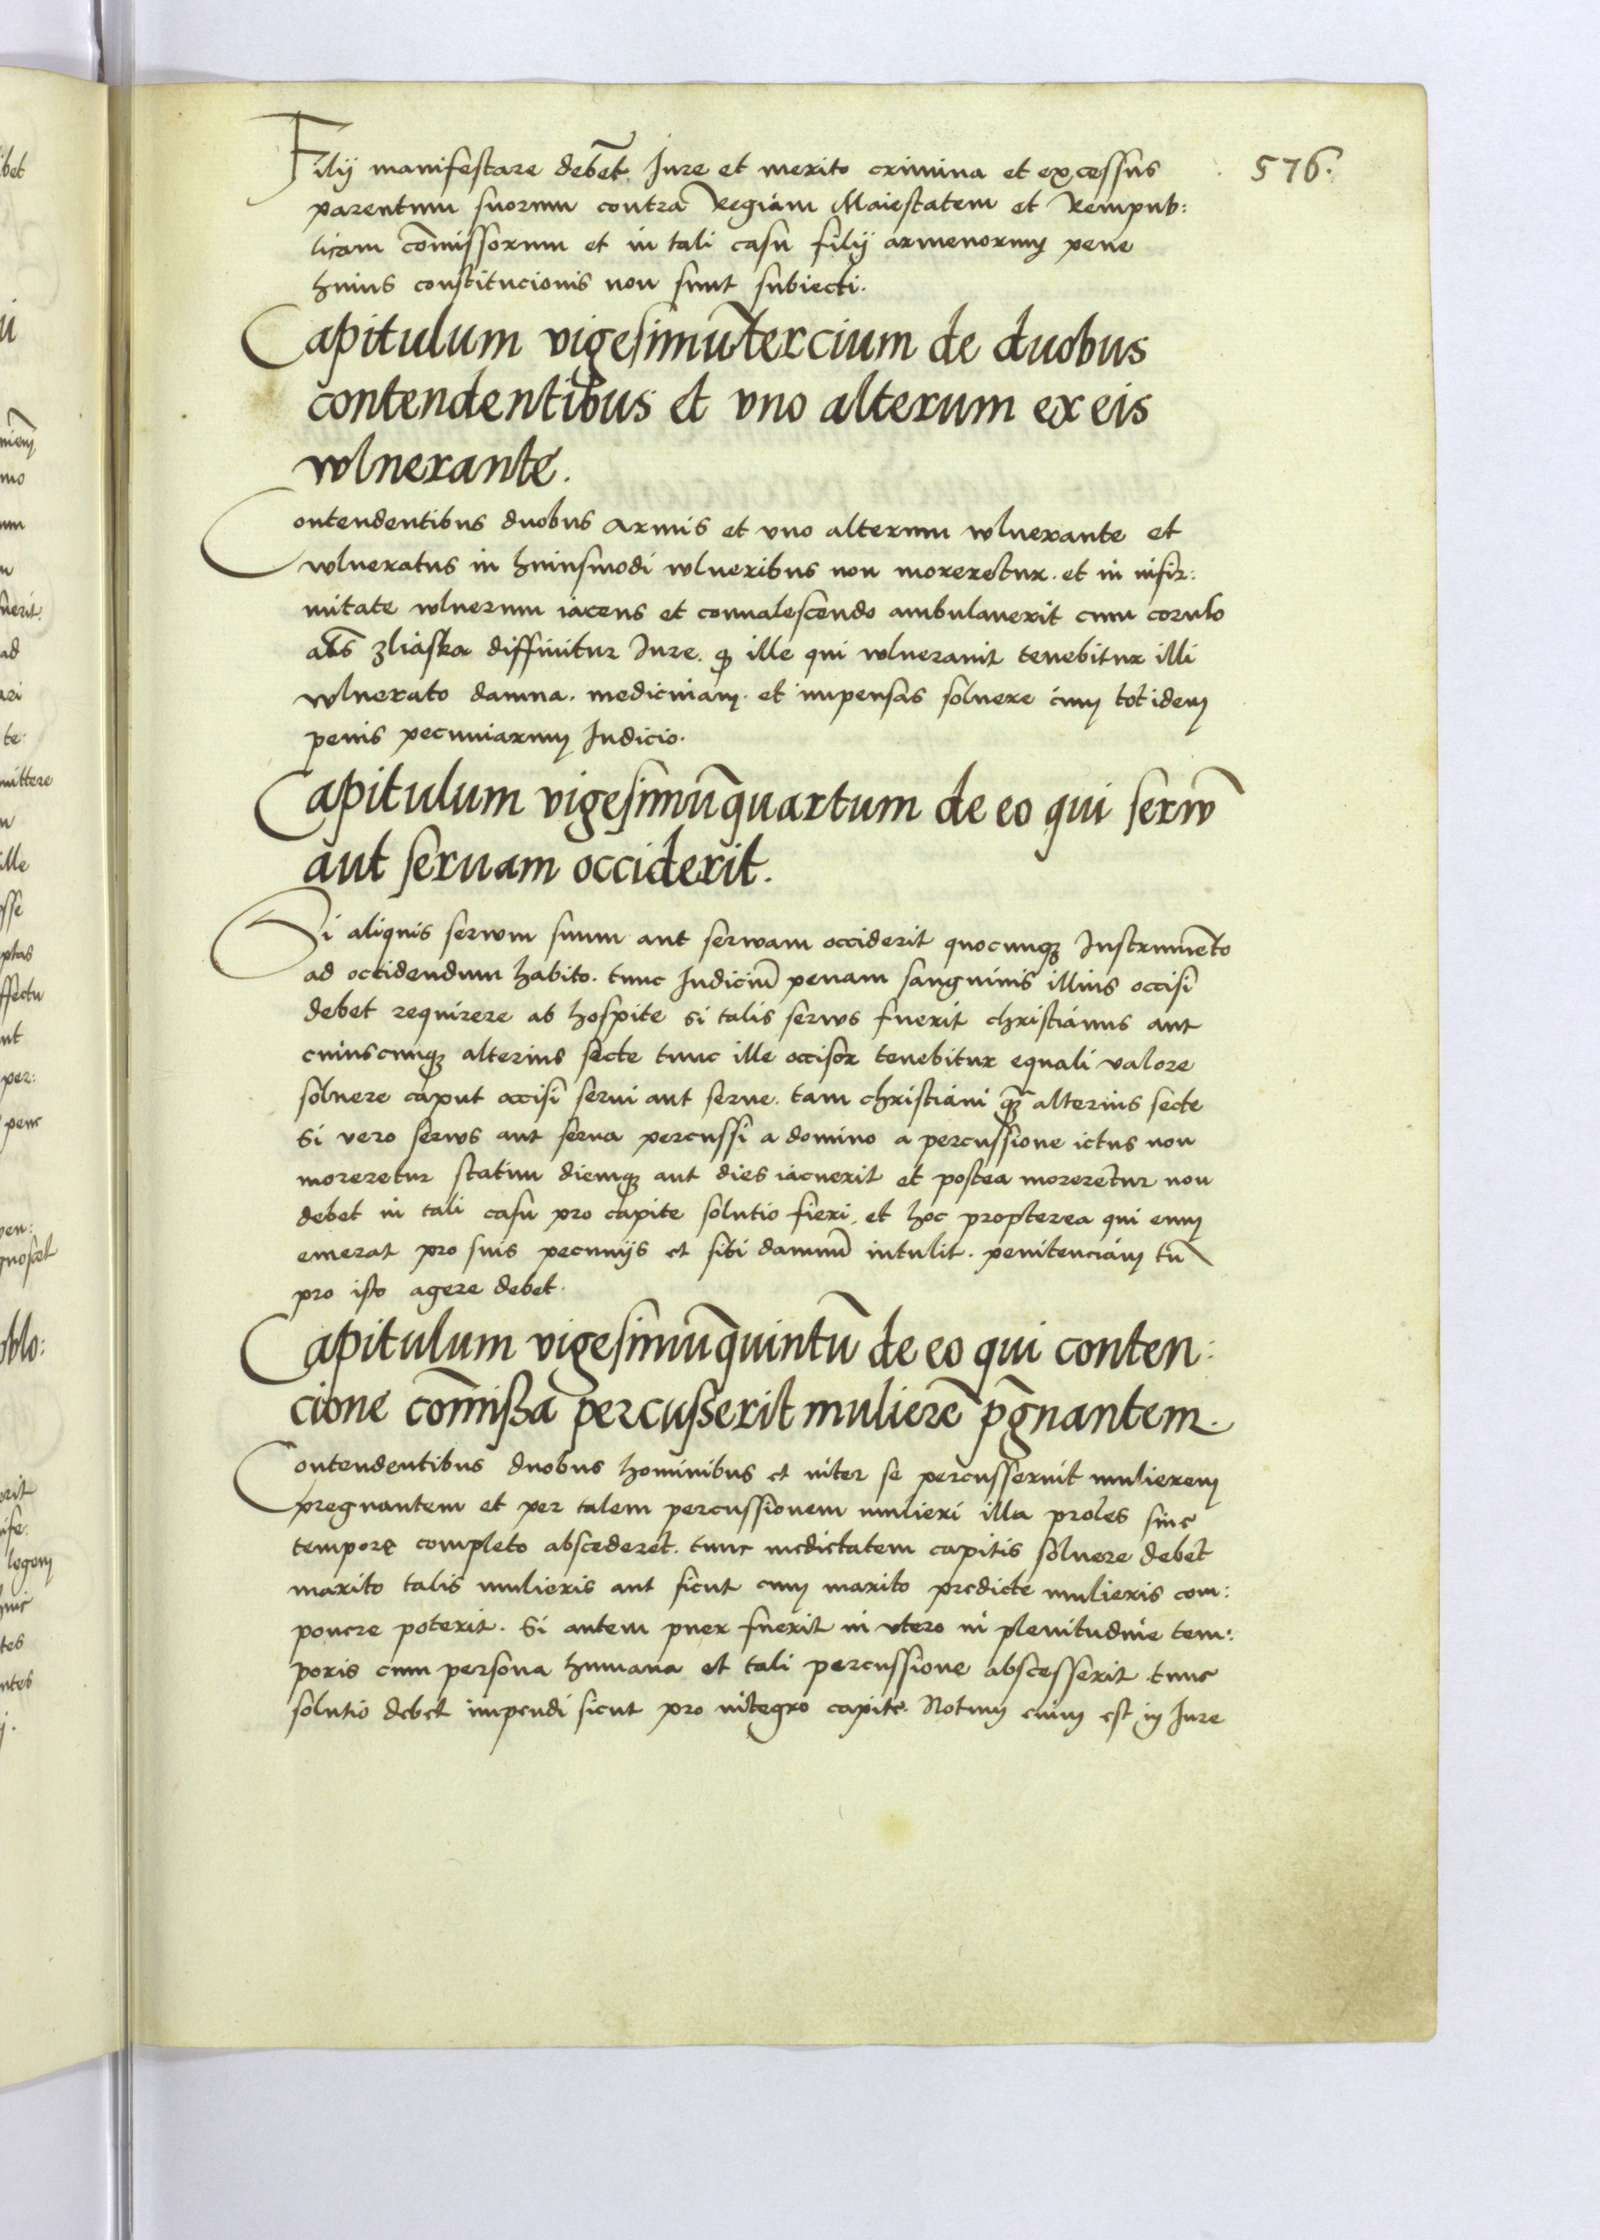 576.
Filij manifestare debēt Jure et merito crimina et excessus
parentum suorum contra Regiam Maiestatem et Rempub:
licam cōmissorum et in tali casu filij armenorum pene
huius constitucionis non sunt subiecti.
Capitulum vigesimūtercium de duobus
contendentibus et vno alterum ex eis
wlnerante.
Contendentibus duobus armis et vno alterum wlnerante et
wlneratus in huiusmodi wlneribus non moreretur. et in infir:
mitate wlnerum iacens et conualescendo ambulauerit cum coculo
als zliaska diffinitur Jure. qȝ ille qui wlnerauit tenebitur illi
wlnerato damna. medicinam. et impensas soluere cum totidem
penis pecuniarum Judicio.
Capitulum vigesimūquartum de eo qui serw̄
aut seruam occiderit.
Si aliquis serwm suum aut serwam occiderit quocunqȝ Instrumēto
ad occidendum habito. tunc Judiciū penam sanguinis illius occisi
debet requirere ab hospite si talis serws fuerit christianus aut
cuiuscunqȝ alterius secte tunc ille occisor tenebitur equali valore
soluere caput occisi serui aut serue. tam christiani qȝ alterius secte
Si vero serws aut serua percussi a domino a percussione ictus non
moreretur statim diemqȝ aut dies iacuerit et postea morerentur non
debet in tali casu pro capite solutio fieri. et hoc propterea qui eum
emerat pro suis pecunijs et sibi damnū intulit. penitenciam tn̄
pro isto agere debet.
Capitulum vigesimūquintū de eo qui conten:
cione cōmissa percusserit mulierē p̄gnantem.
Contendentibus duobus hominibus et inter se percusserint mulierem
pregnantem et per talem percussionem mulieri illa proles sine
tempore completo abscederet. tunc medietatem capitis soluere debet
marito talis mulieris aut sicut cum marito predicte mulieris com:
ponere poterit. Si autem puer fuerit in vtero in plenitudine tem:
poris cum persona humana et tali percussione abscesserit tunc
solutio debet impendi sicut pro integro capite. Notum enim est in Jure